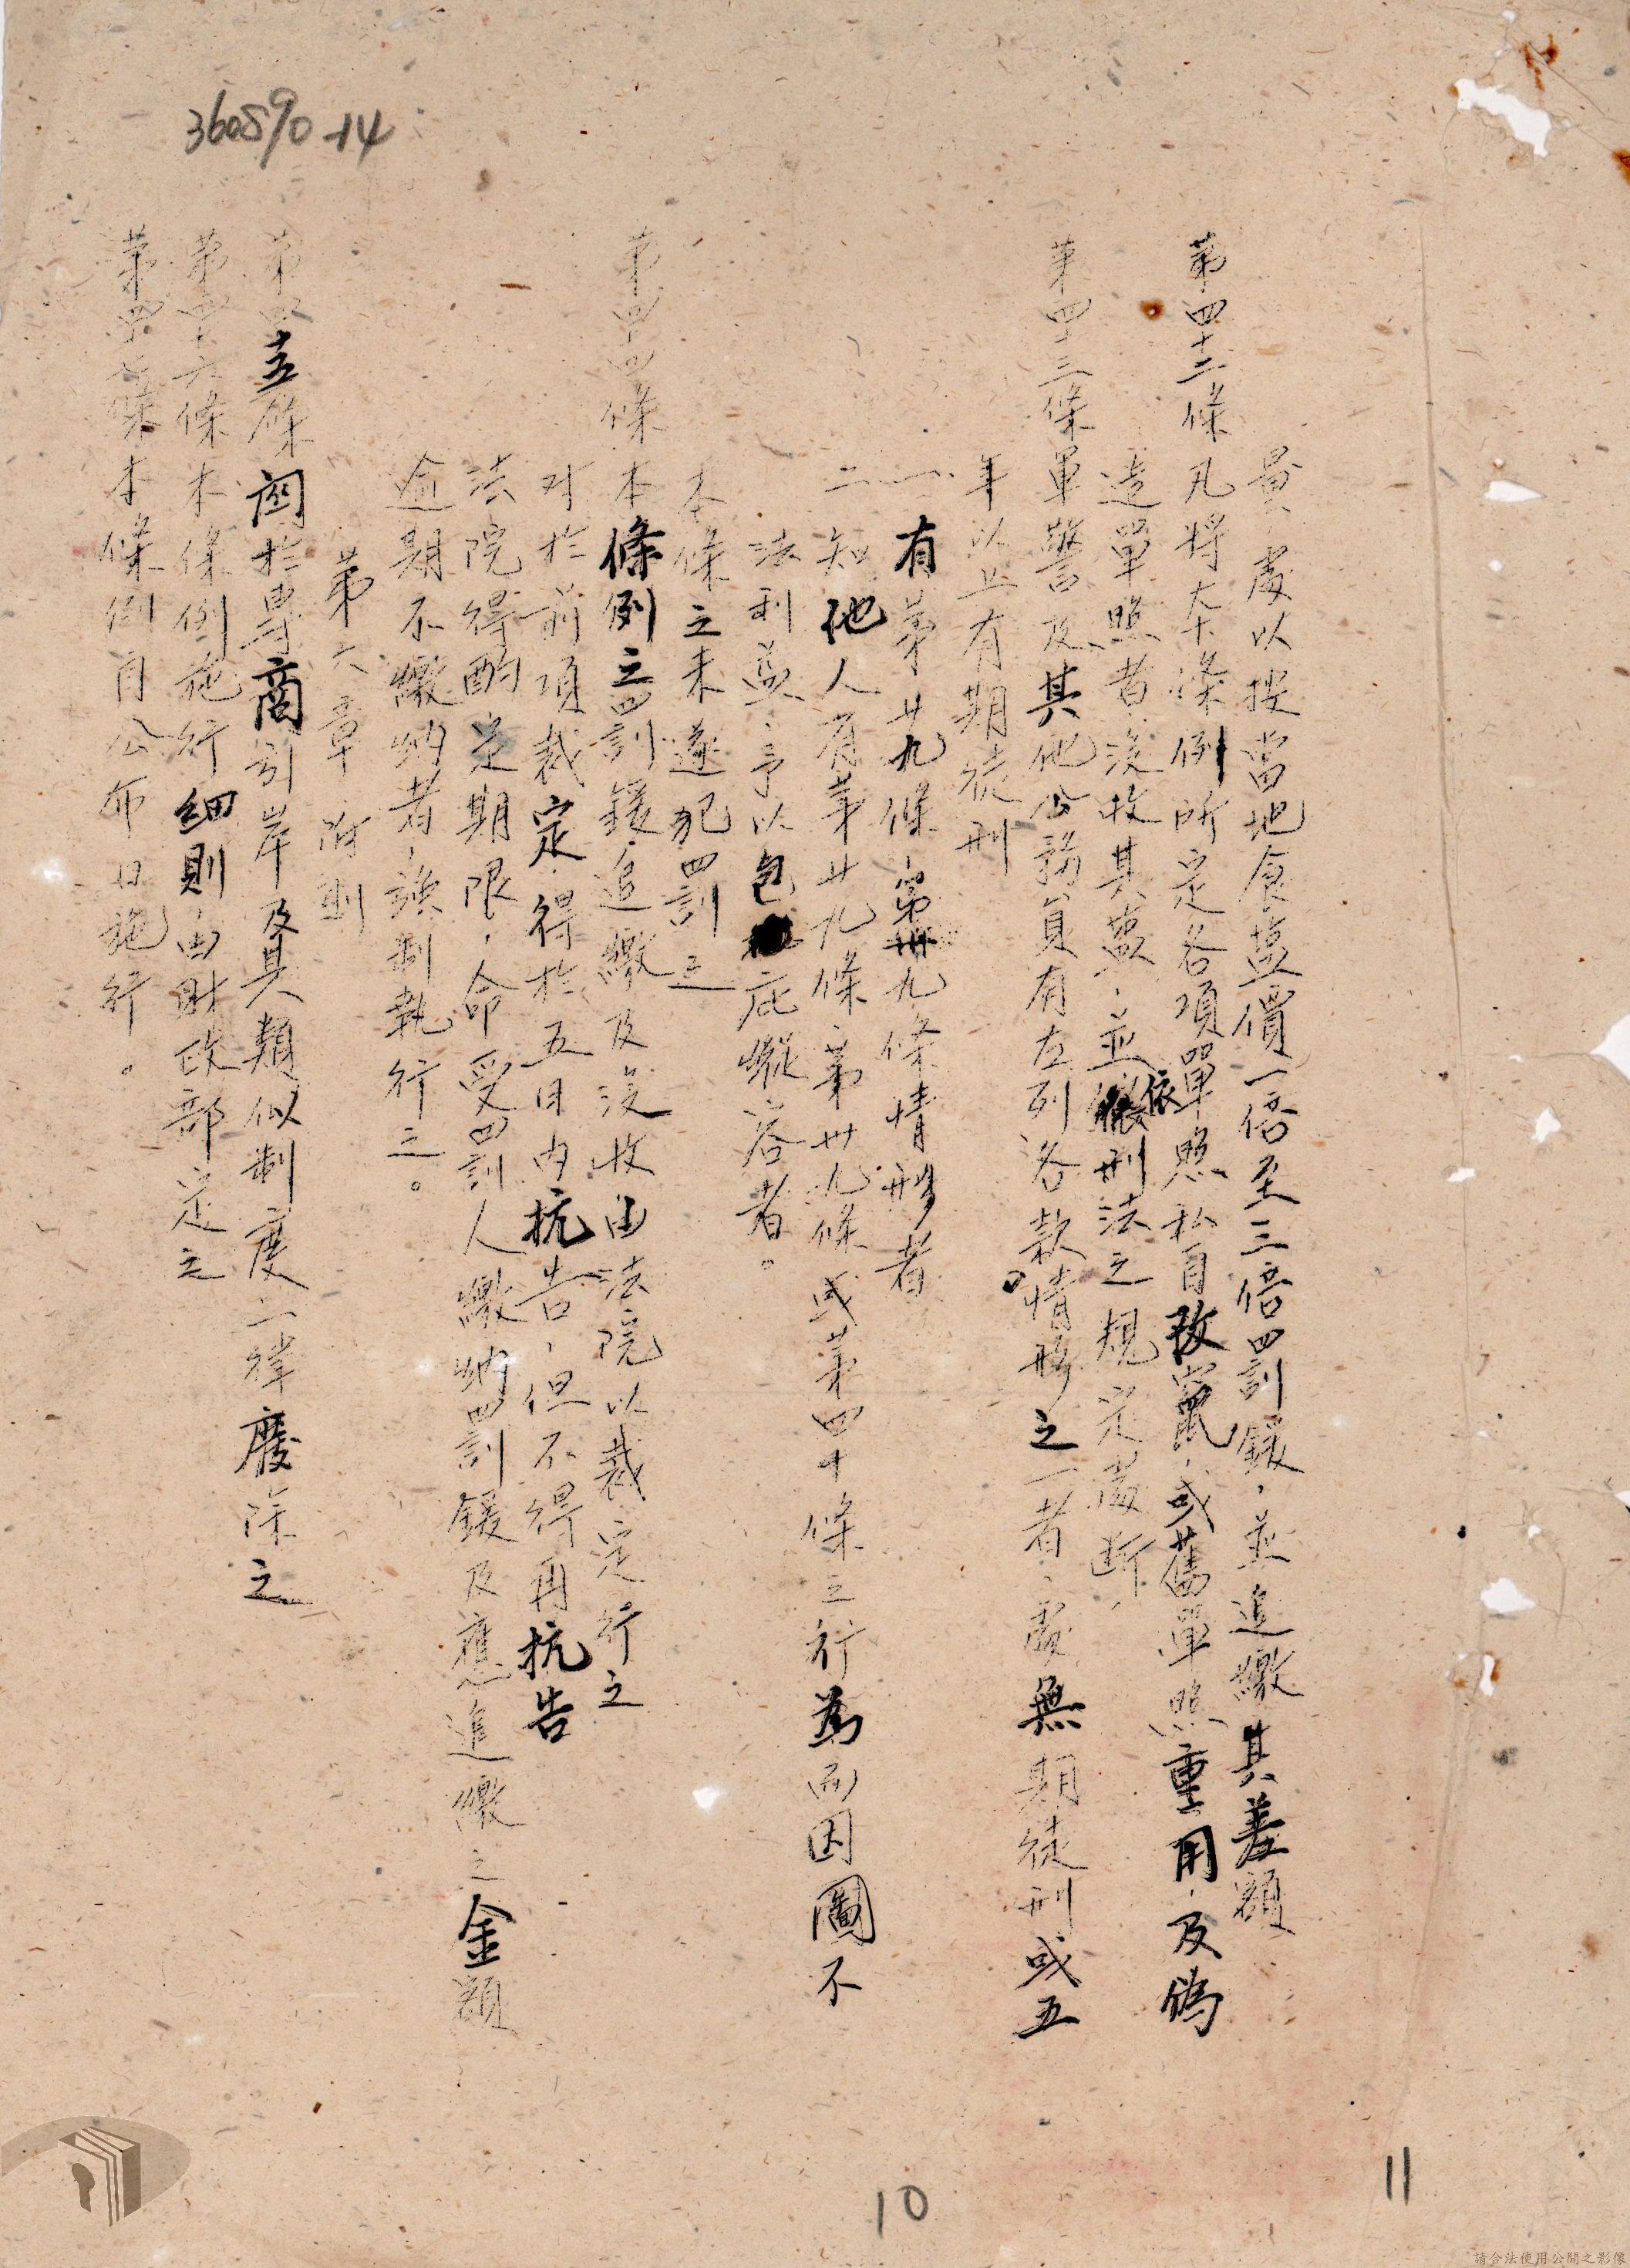 360890-14
量，處以按當地食鹽價一倍至三倍罰鍰，並追繳其差額
第四十二條 凡將本條例所定各項單照私自改竄，或舊單照重用，及偽
造單照者，沒收其鹽，並依刑法之規定處斷，
第四十三條 軍警及其他公務員有左列各款情形之一者，處無期徒刑或五
年以上有期徒刑
一、有第廿九條，第卅九條情形者
二、知他人有第廿九條第卅九條或第四十條之行為而因圖不
法利益，予以包庇縱容者。
本條之未遂犯罰之
第四十四條 本條例之罰鍰，追繳及沒收由法院以裁定行之
对於前項裁定，得於五日內抗告，但不得再抗告
法院得酌定期限，命受罰人繳納罰鍰及應追繳之金額
逾期不繳納者，強制執行之。
第六章 附則
第四十五條 關於專商引岸及其類似制度一律廢除之
第四十六條 本條例施行細則由財政部定之
第四十七條 本條例自公布日施行。
10
11
請合法使用公開之影像